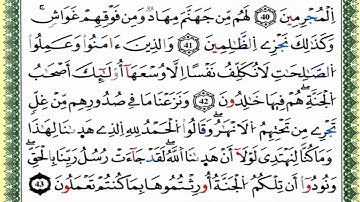 ٱلْمُجْرِمِينَ 40 لَهُم مِّن جَهَنَّمَ مِهَادٌ وَمِن فَوْقِهِمْ غَوَاشٍ ۚ
وَكَذَٰلِكَ نَجْزِى ٱلظَّـٰلِمِينَ 41 وَٱلَّذِينَ ءَامَنُوا۟ وَعَمِلُوا۟
ٱلصَّـٰلِحَـٰتِ لَا نُكَلِّفُ نَفْسًا إِلَّا وُسْعَهَآ أُو۟لَـٰٓئِكَ أَصْحَـٰبُ
ٱلْجَنَّةِ ۖ هُمْ فِيهَا خَـٰلِدُونَ 42 وَنَزَعْنَا مَا فِى صُدُورِهِم مِّنْ غِلٍّ
تَجْرِى مِن تَحْتِهِمُ ٱلْأَنْهَـٰرُ ۖ وَقَالُوا۟ ٱلْحَمْدُ لِلَّهِ ٱلَّذِى هَدَىٰنَا لِهَـٰذَا
وَمَا كُنَّا لِنَهْتَدِىَ لَوْلَآ أَنْ هَدَىٰنَا ٱللَّهُ ۖ لَقَدْ جَآءَتْ رُسُلُ رَبِّنَا بِٱلْحَقِّ ۖ
وَنُودُوٓا۟ أَن تِلْكُمُ ٱلْجَنَّةُ أُورِثْتُمُوهَا بِمَا كُنتُمْ تَعْمَلُونَ 43